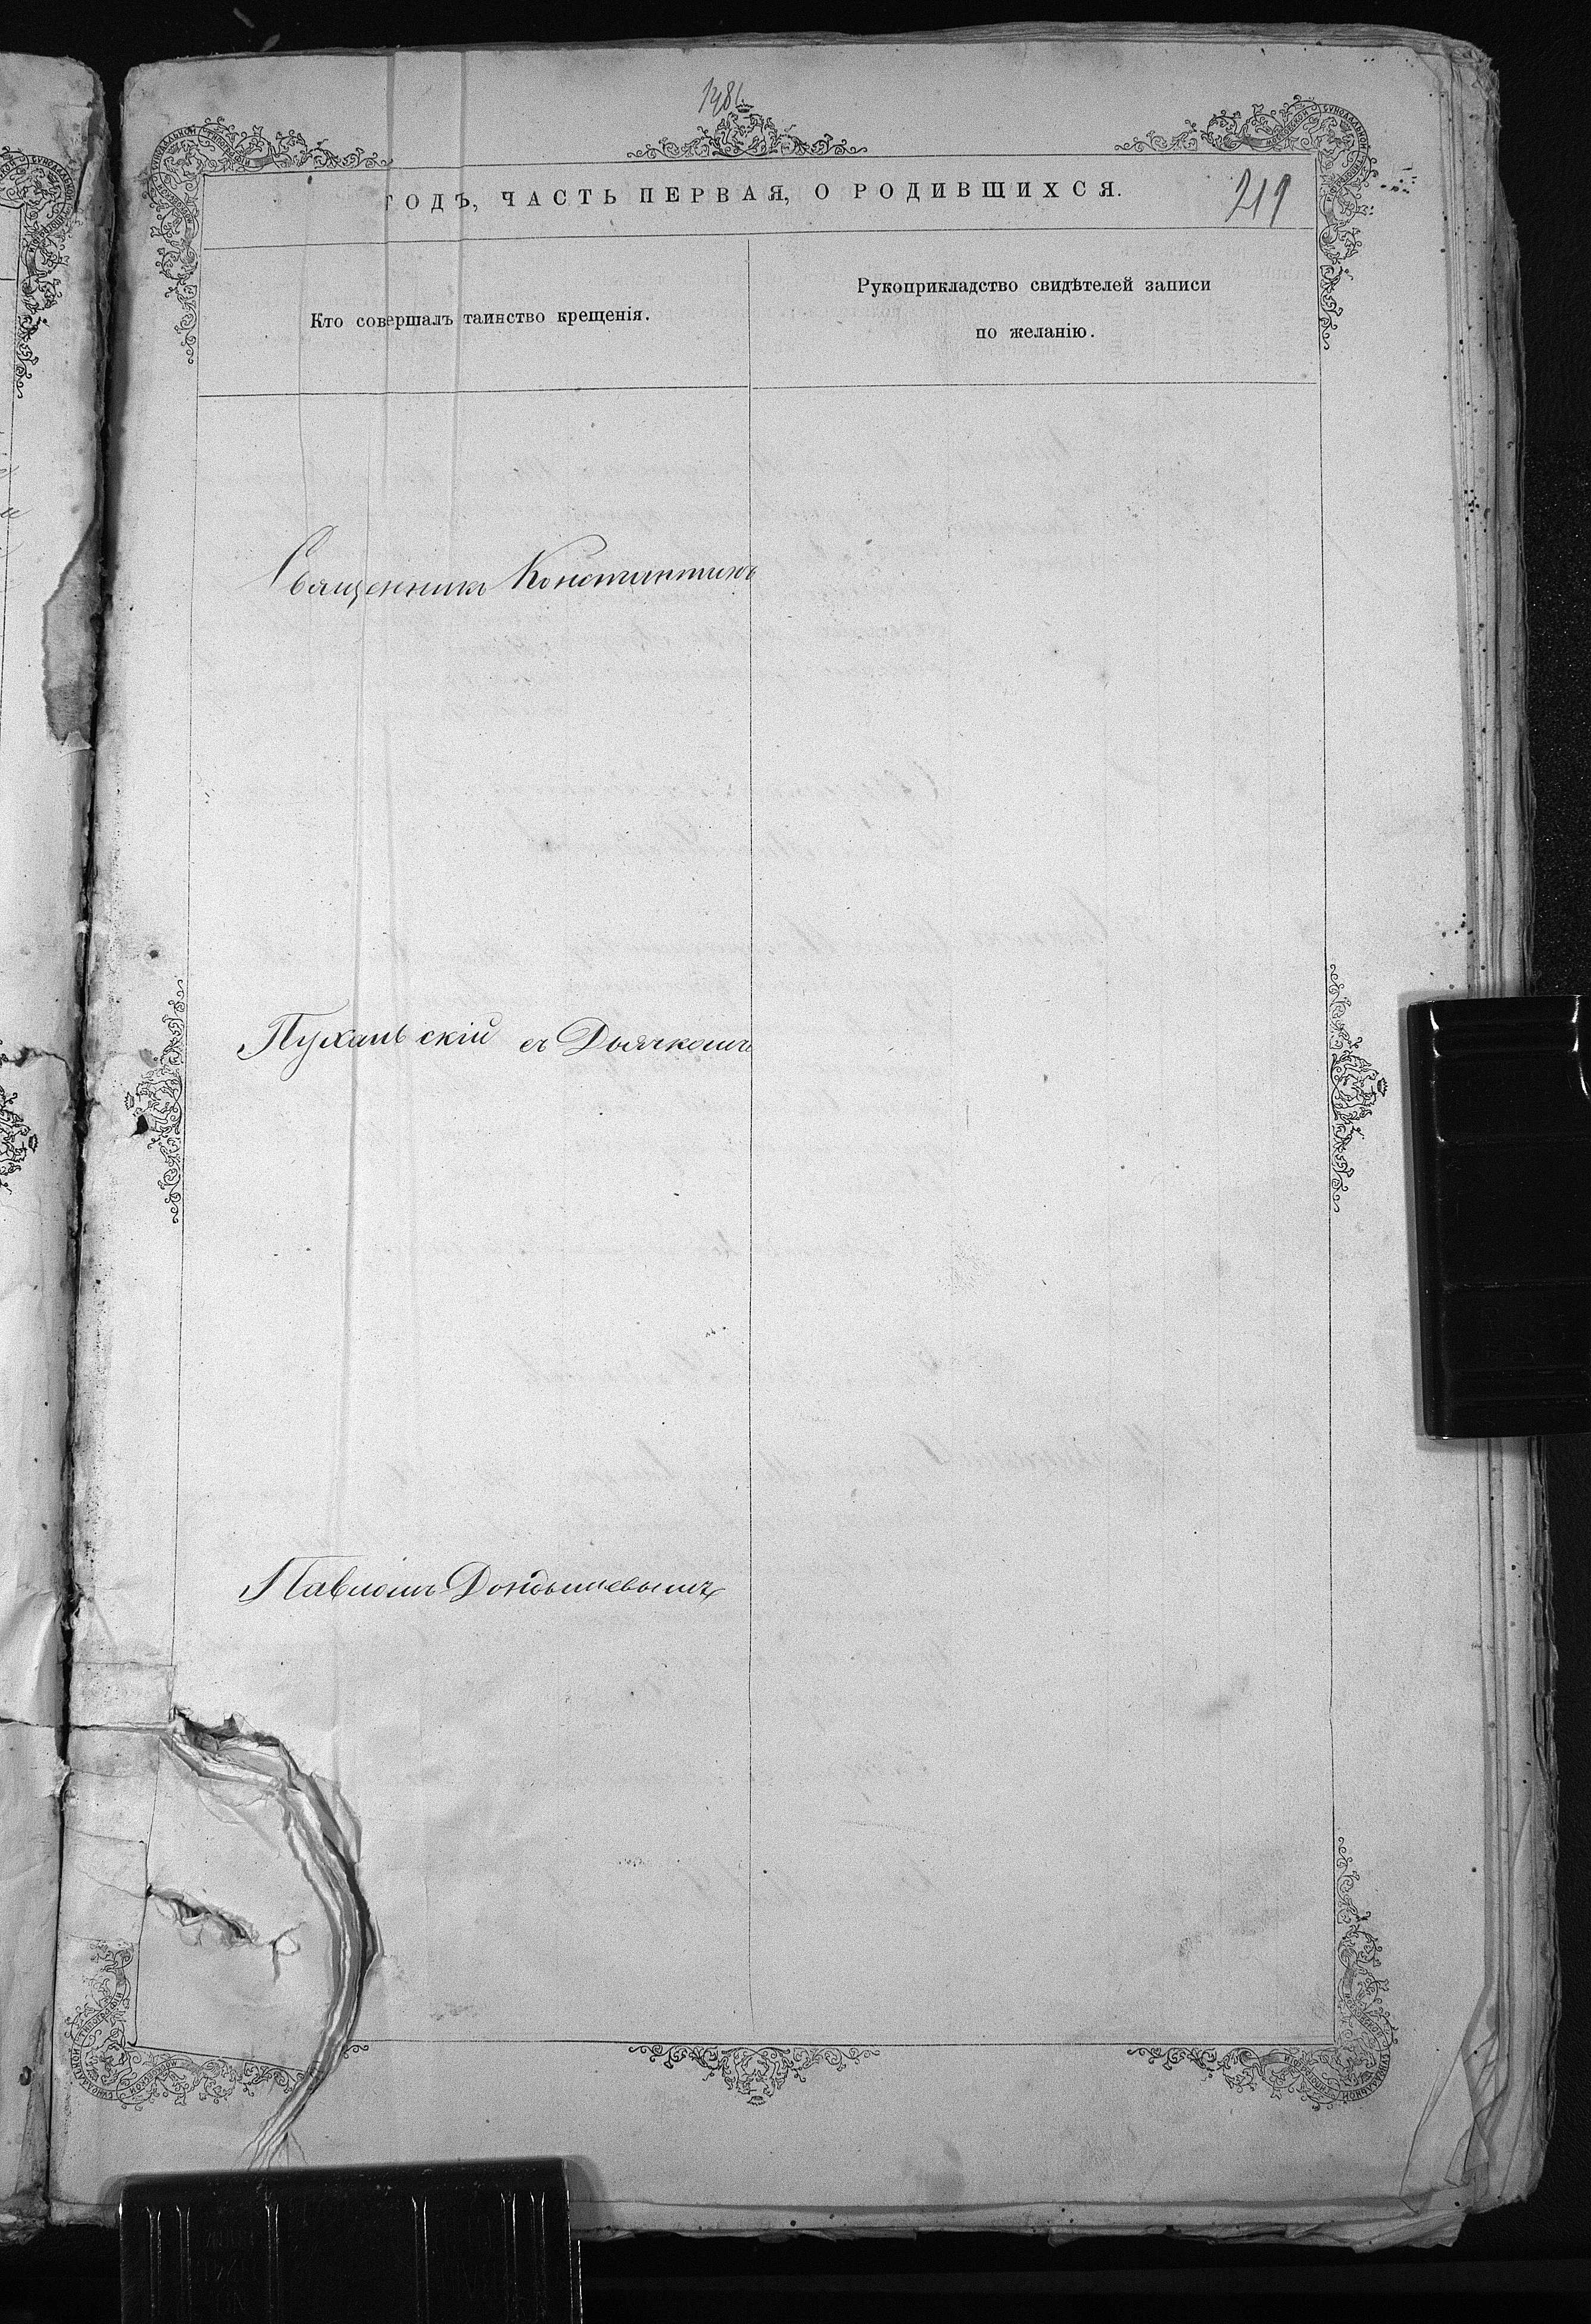 219
ГОДЪ, ЧАСТЬ ПЕРВАЯ, О РОДИВШИХСЯ.
Кто совершалъ таинство крещенія.
Рукоприкладство свидѣтелей записи
по желанію.
Священникъ Константинъ
Пуханьскій съ Дьячкомъ
Павломъ